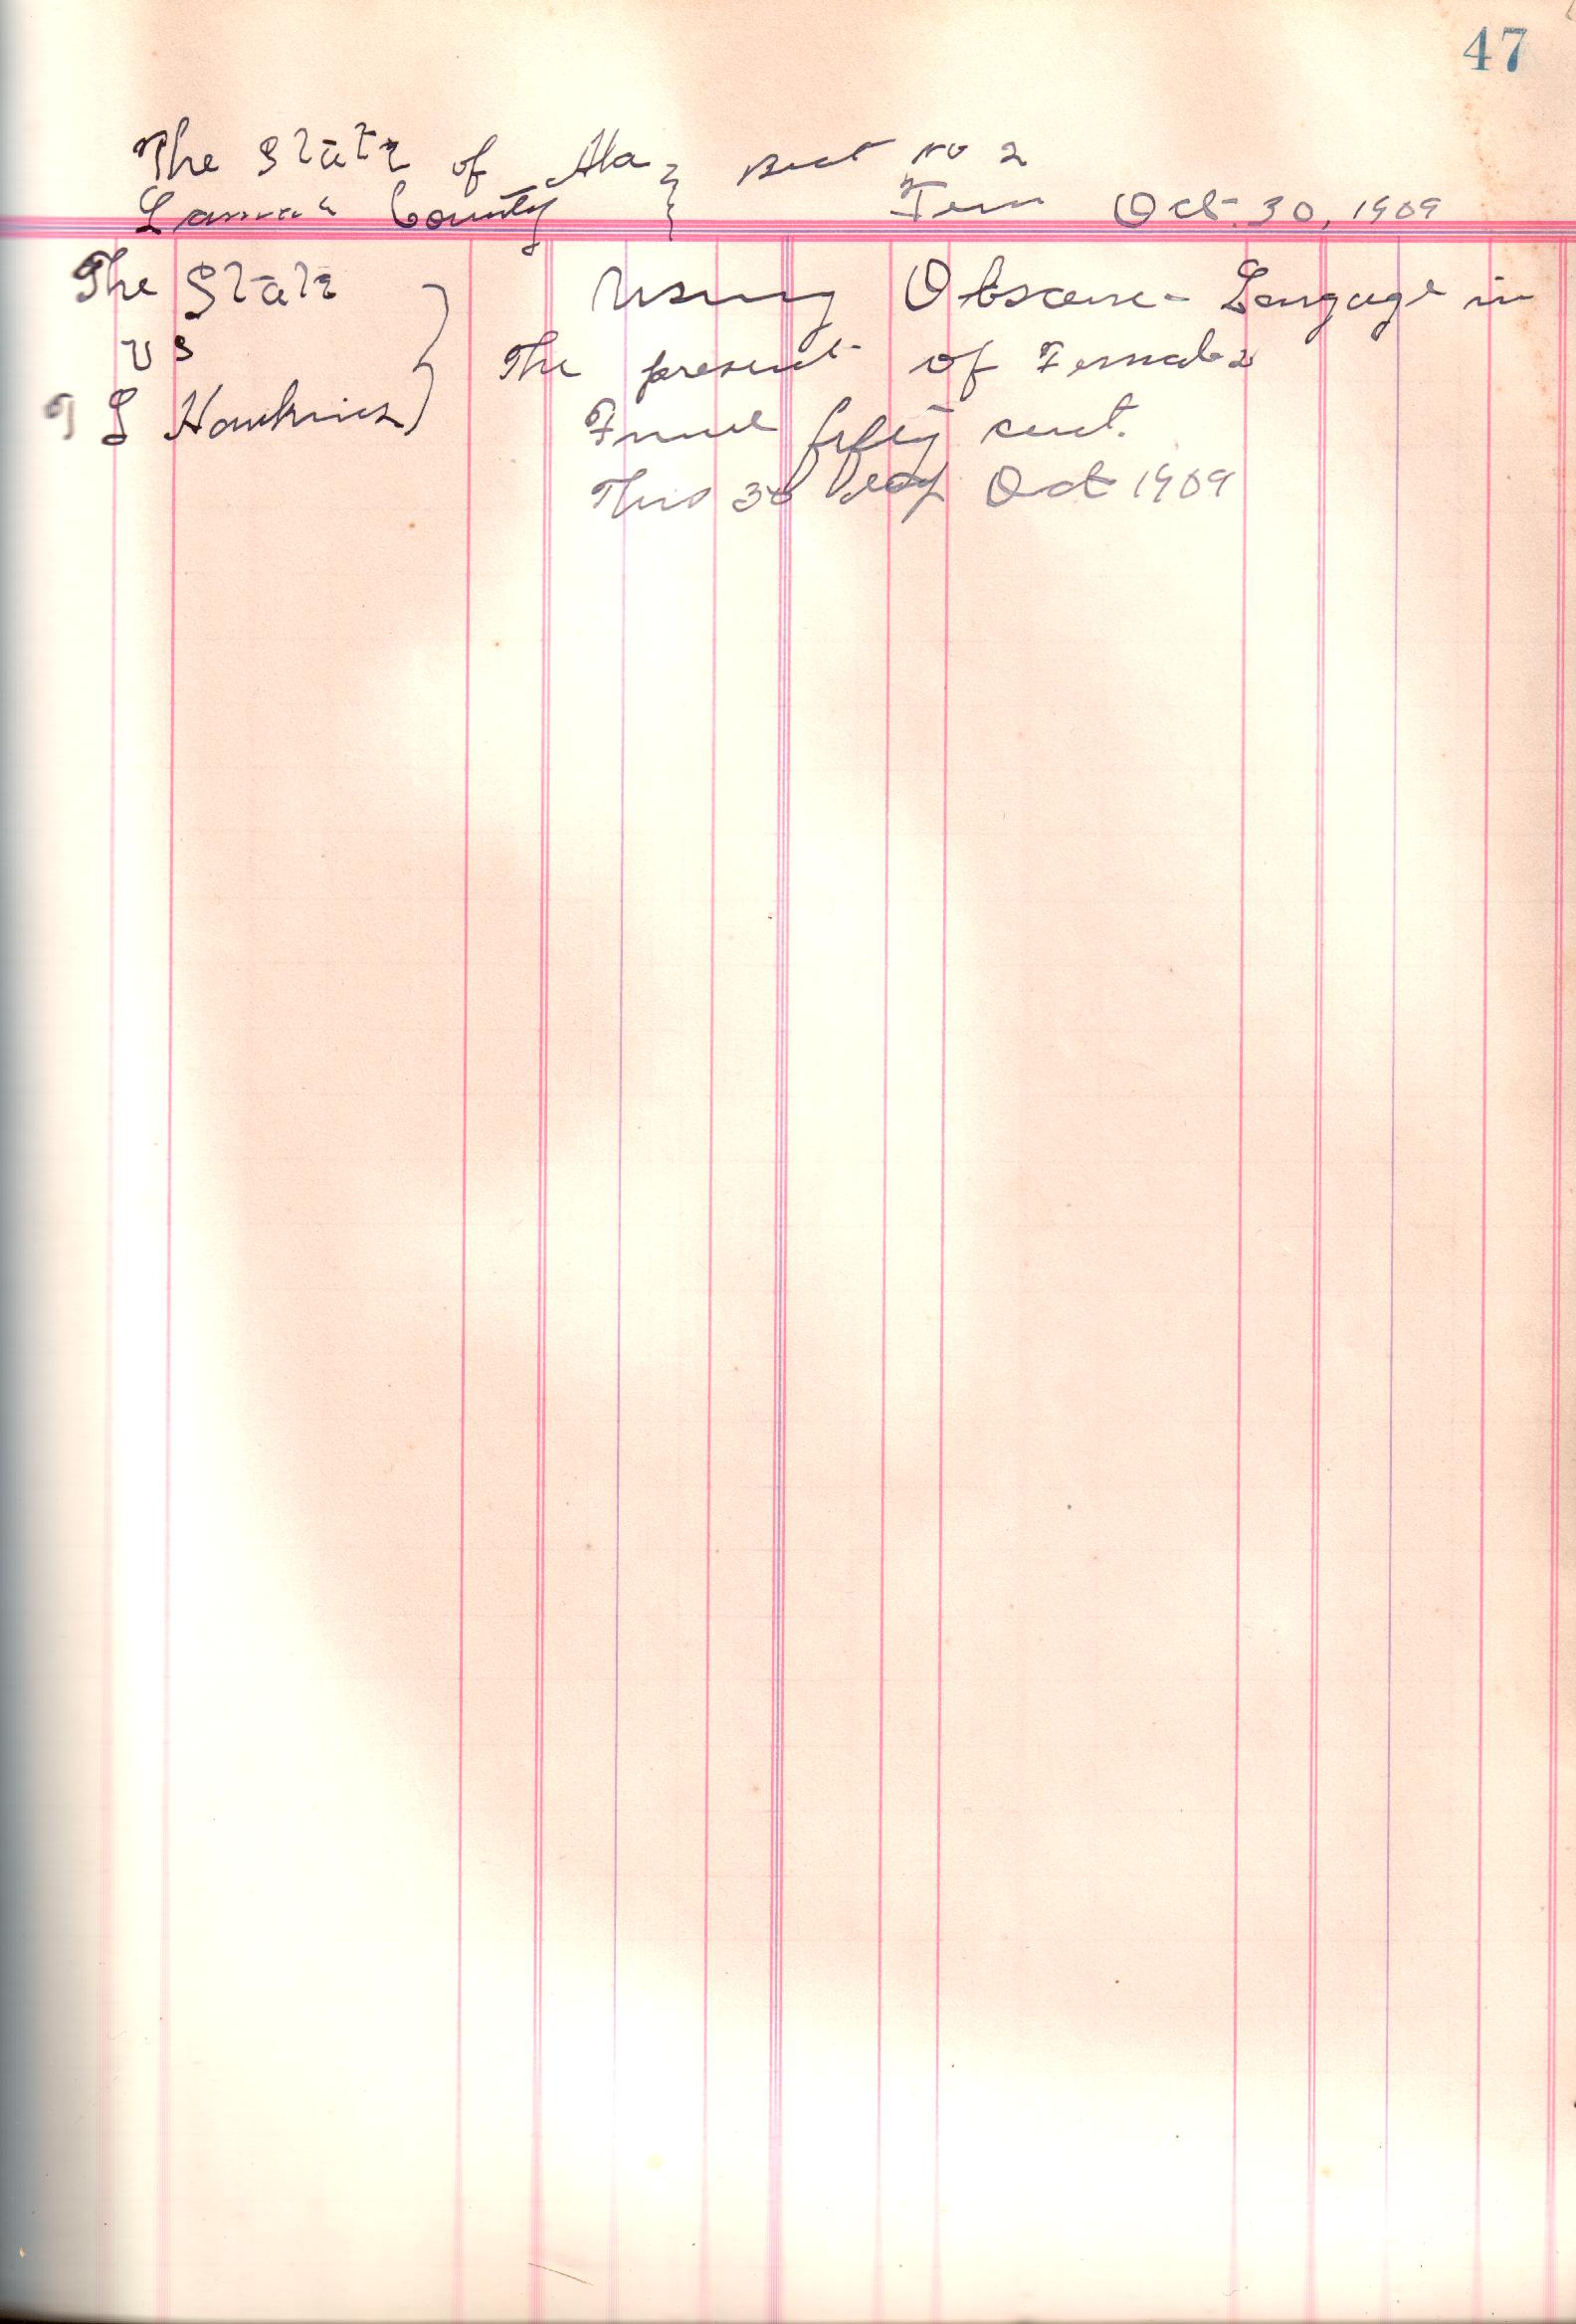 47
The State of Ala } Beat No 2
Lamar County } Term Oct. 30, 1909
The State } Using Obscene Langage in
vs } The present of Female
T L Hawkins } Fined fifty cent.
This 30 day Oct 1909